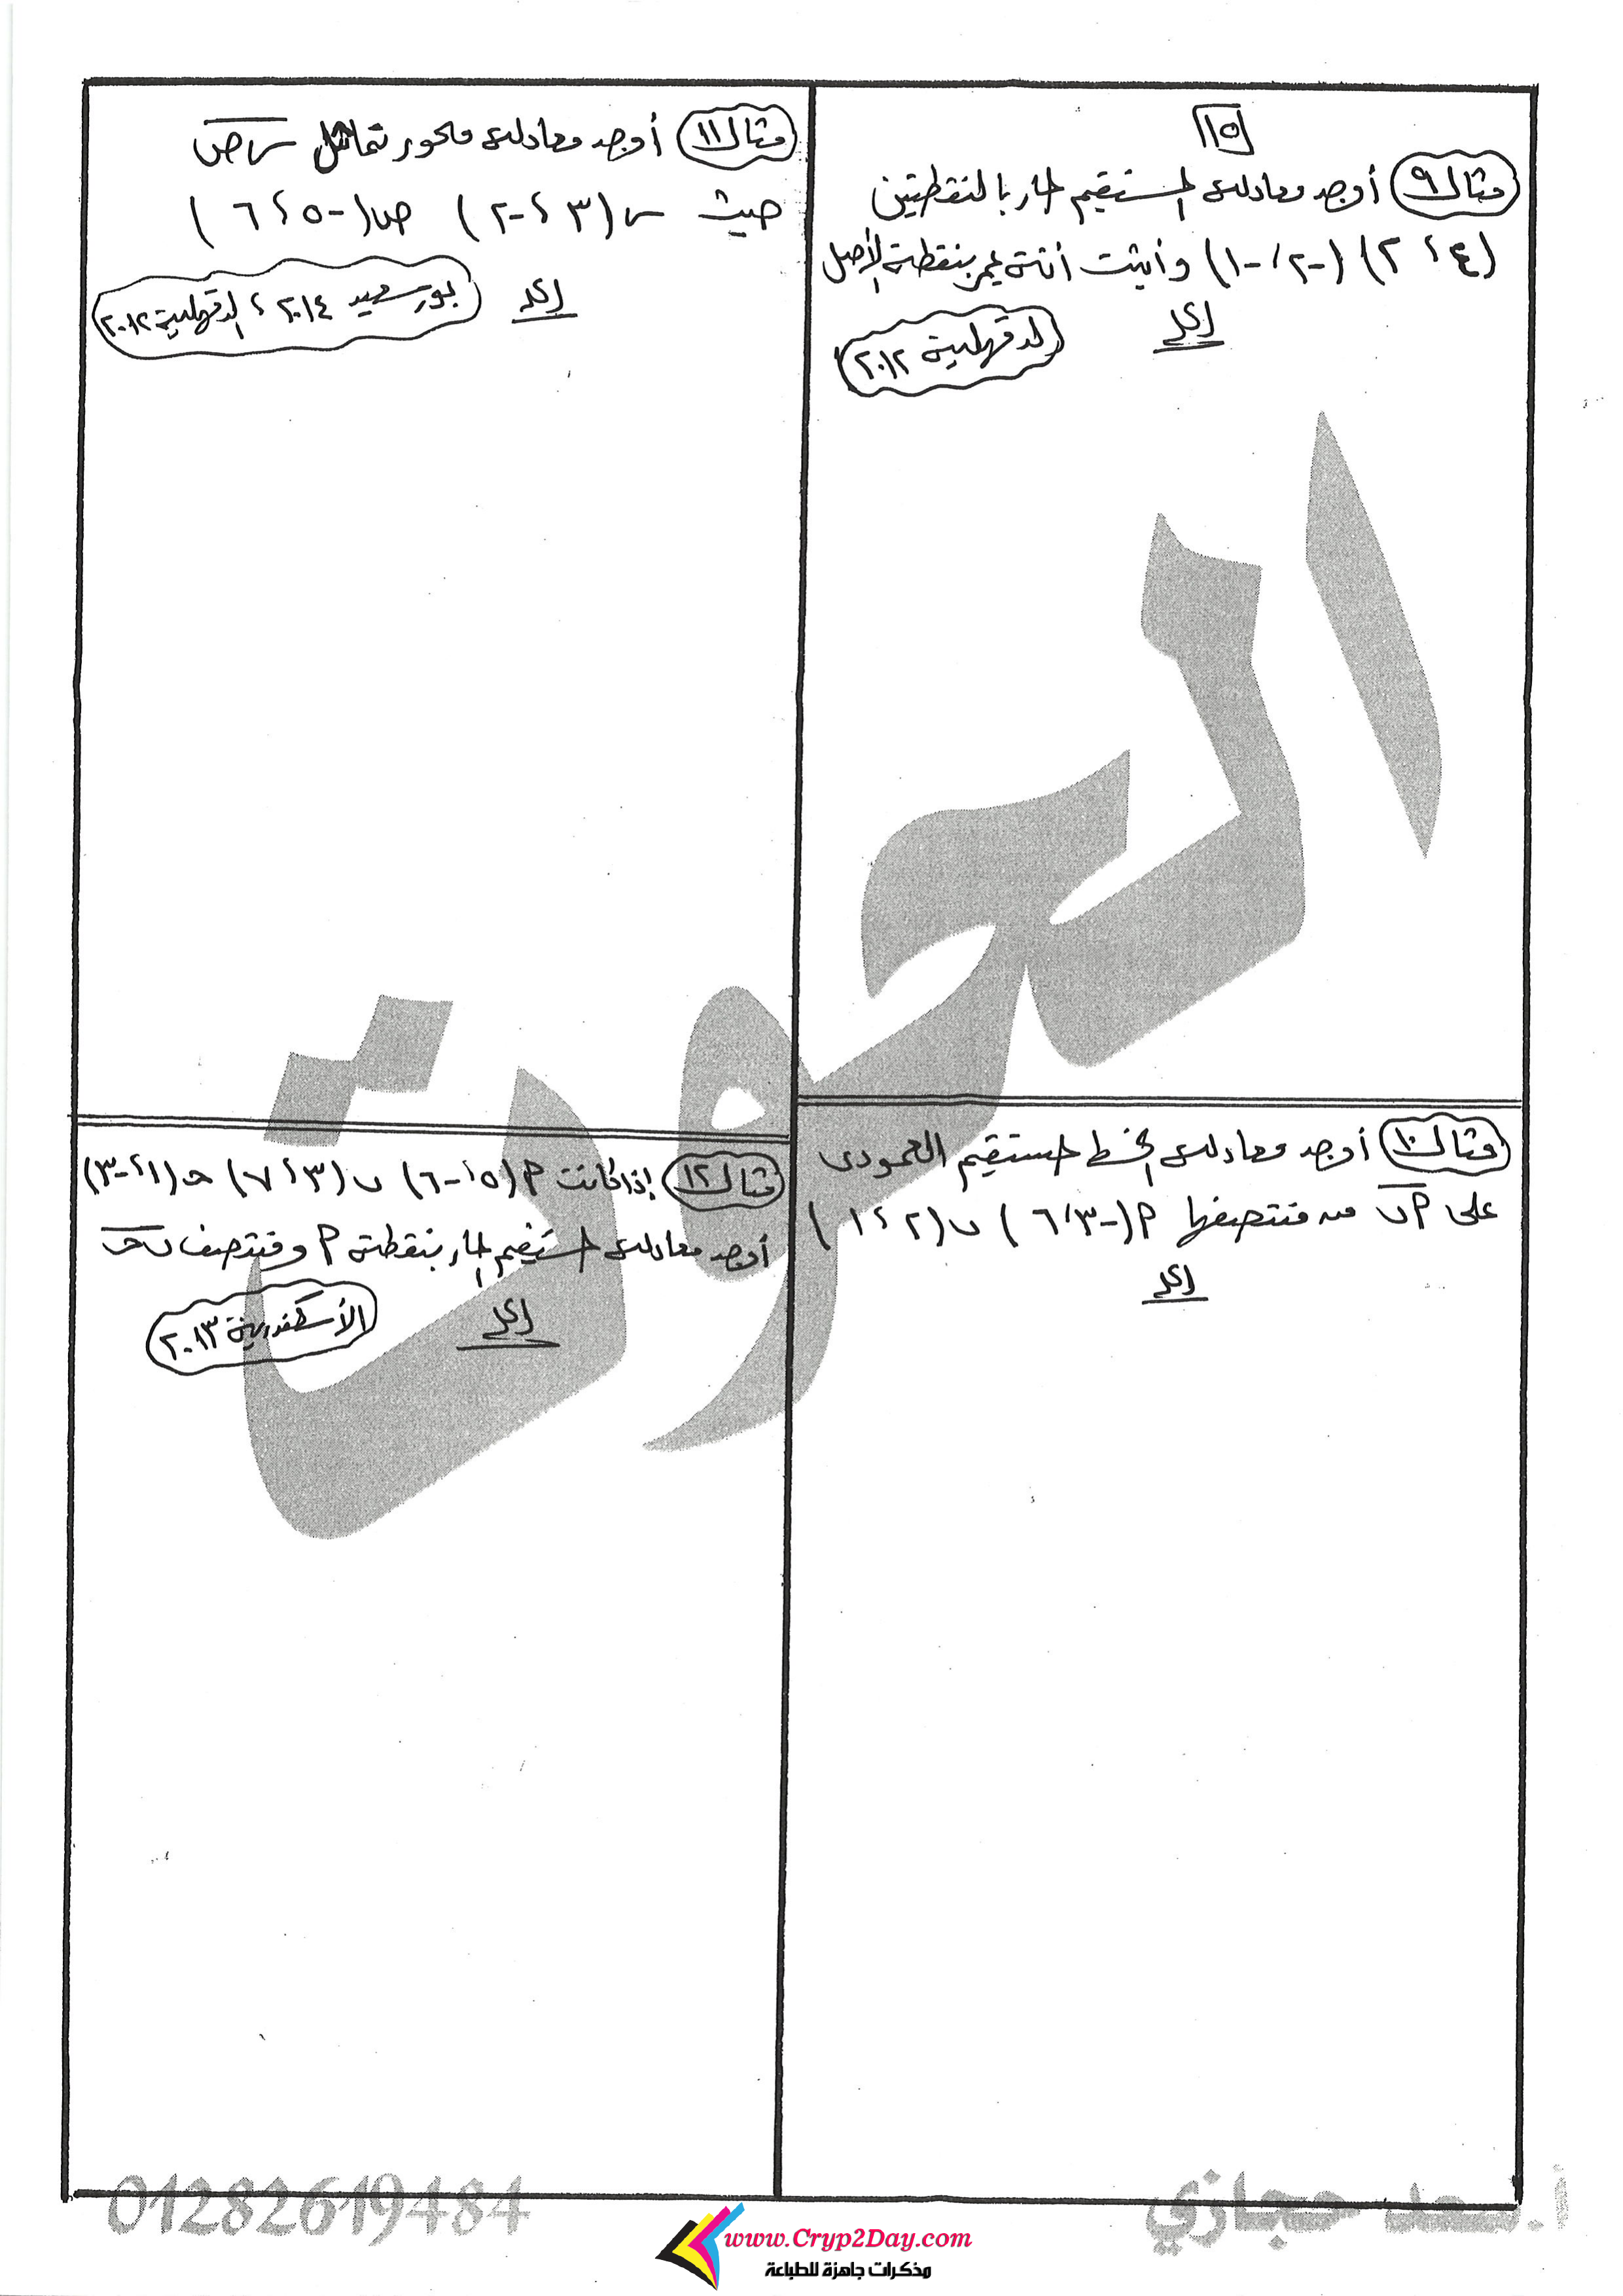 ١١٥
مثال ٩ أوجد معادلة المستقيم المار بالنقطتين
(٤ ، ٢) (-٢ ، -١) وأثبت أنه يمر بنقطة الأصل
الحل
الدقهلية ٢٠١٢
مثال ١٠ أوجد معادلة الخط المستقيم العمودى
على أب من منتصفها أ(-٣ ، ٦) ب(٢ ، ١)
الحل
مثال ١١ أوجد معادلة محور تماثل س ص
حيث س(٣ ، -٢) ص(-٥ ، ٦)
الحل
بورسعيد ٢٠١٤ ، الدقهلية ٢٠١٢
مثال ١٢ إذا كانت أ(٥ ، -٦) ب(٣ ، ٧) حـ(١ ، -٣)
أوجد معادلة المستقيم المار بنقطة أ ومنتصف ب حـ
الحل
الأسكندرية ٢٠١٣
01282619484
حجازي
www.Cryp2Day.com
مذكرات جاهزة للطباعة